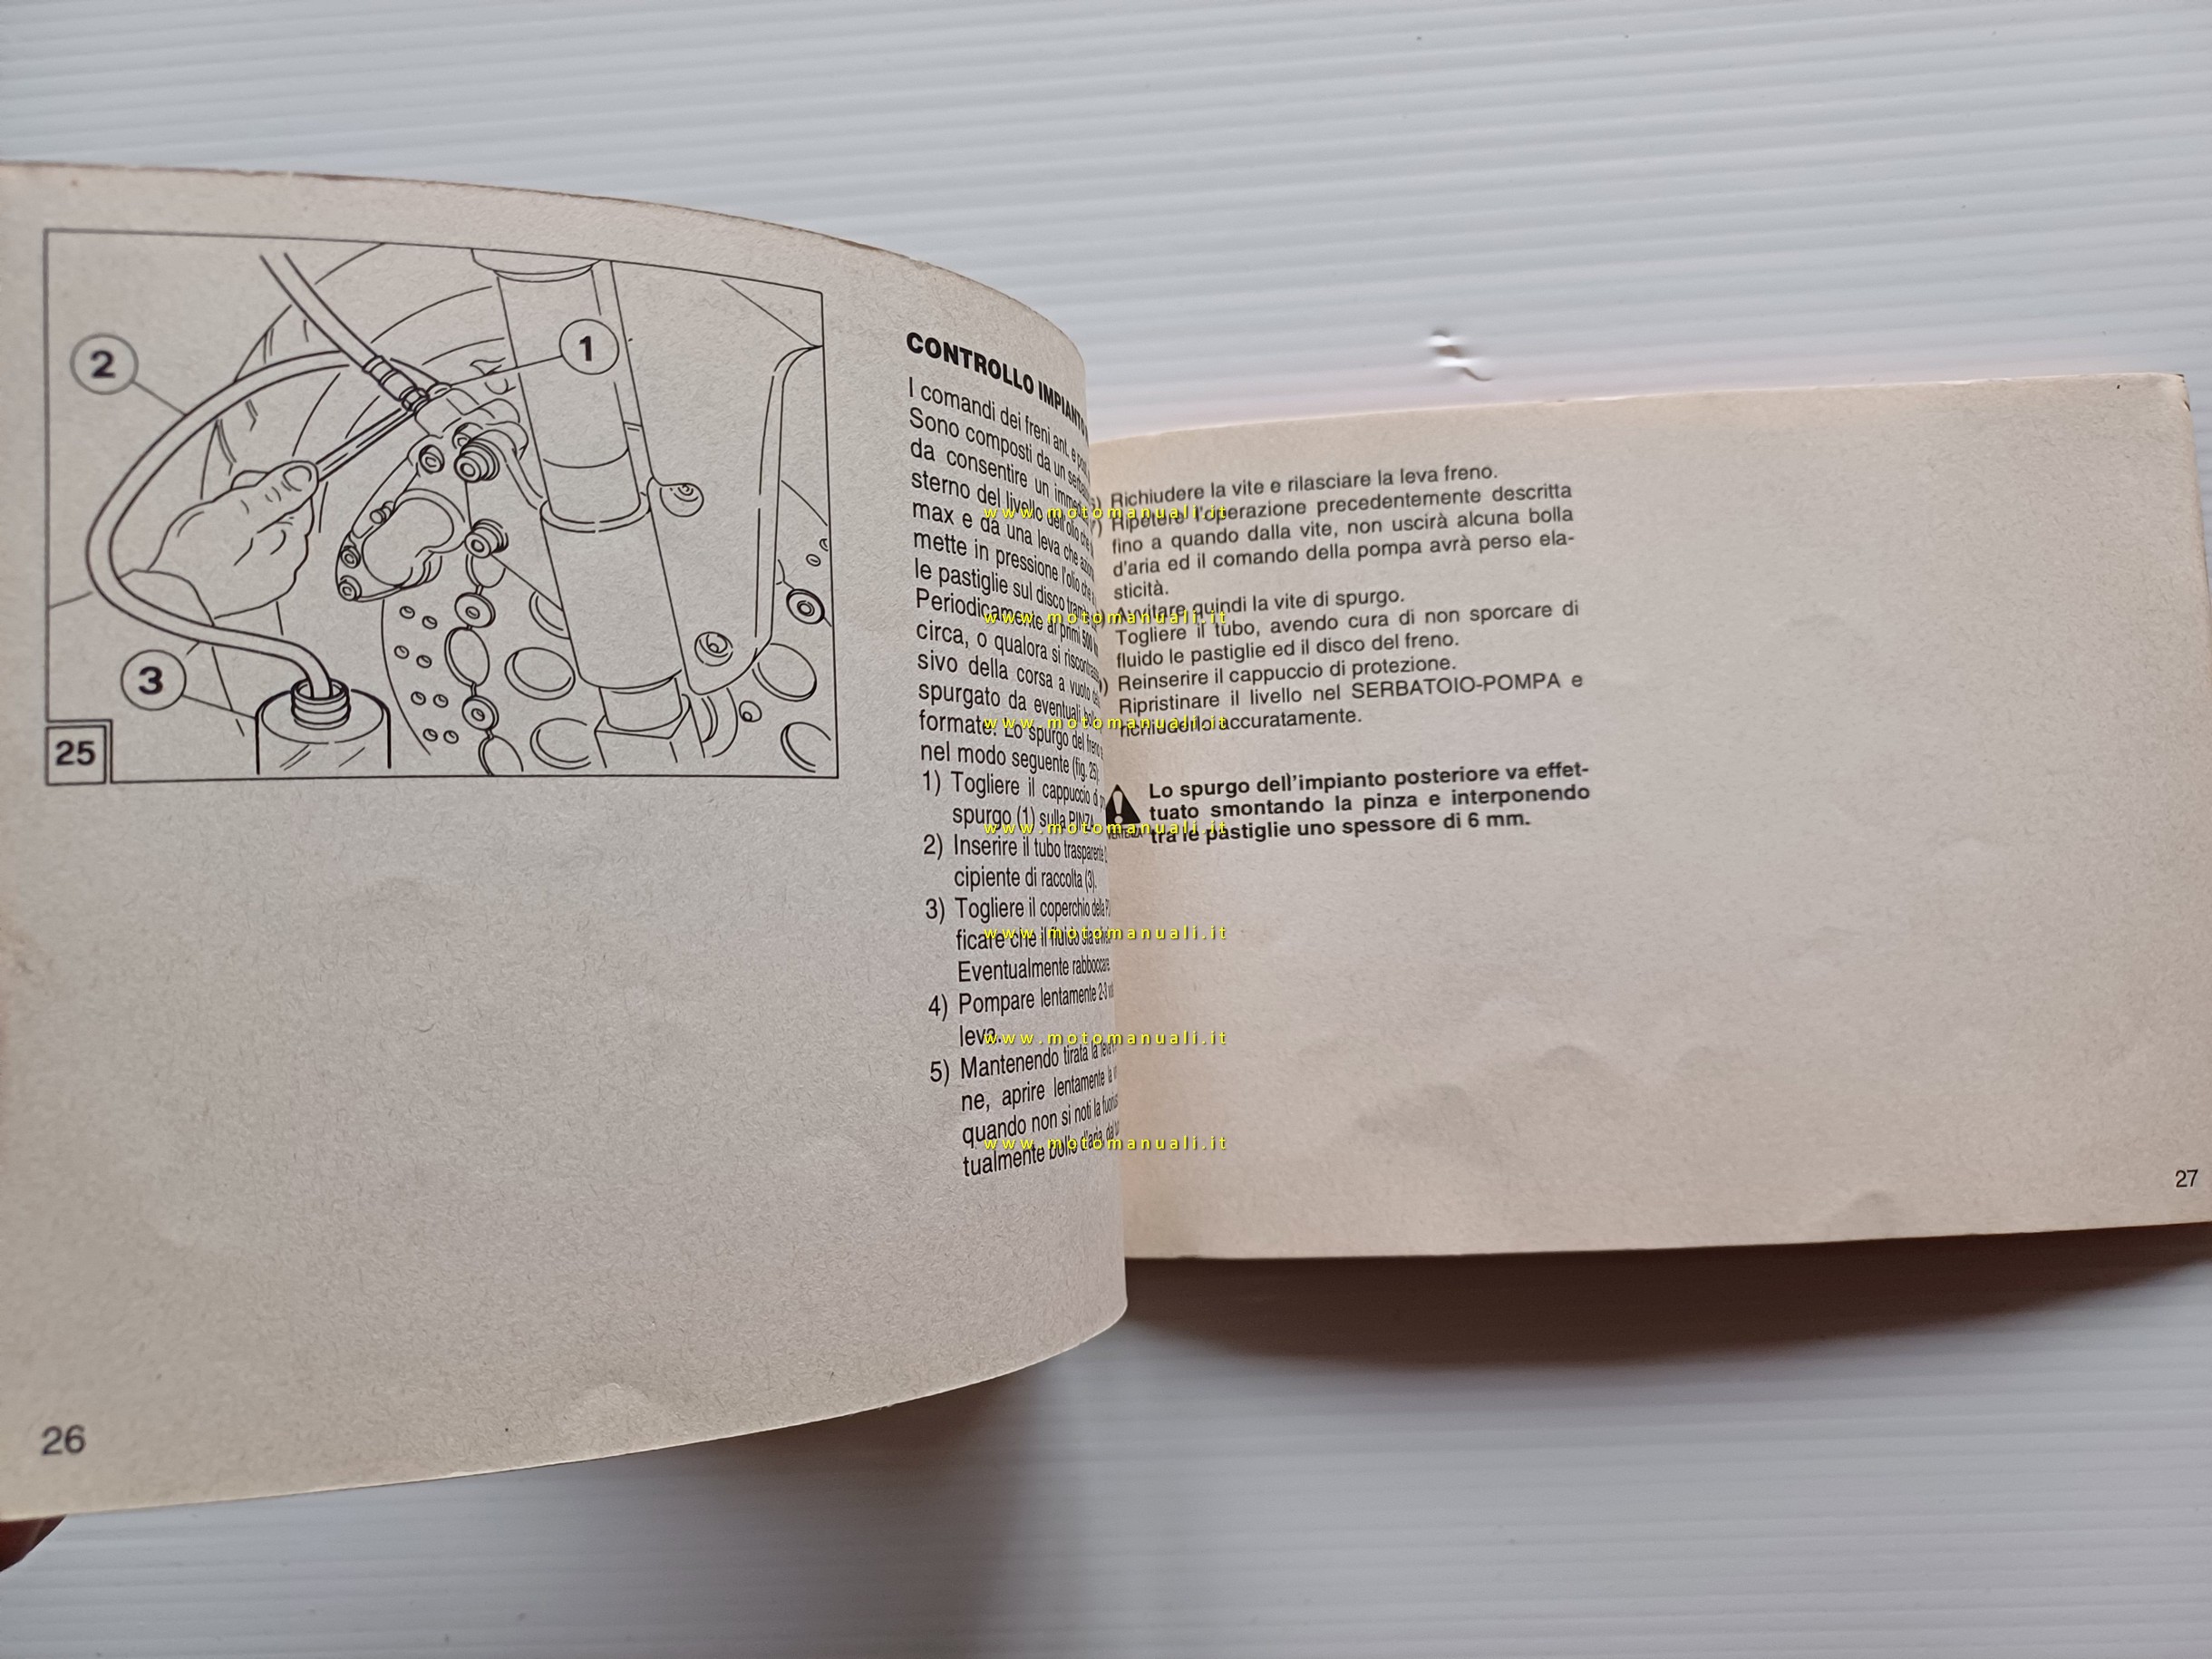 2
1
3
25
26
CONTROLLO IMPIANTO
I comandi dei freni ant. e post.
Sono composti da un
da consentire un
sterno del livello dell'olio che
max e da una leva che
mette in pressione l'olio che
le pastiglie sul disco
Periodicamente ai primi 500
circa, o qualora si
sivo della corsa a vuoto
spurgato da eventuali
formate. Lo spurgo del freno
nel modo seguente (fig. 25)
1) Togliere il cappuccio
spurgo (1) sulla PINZA
2) Inserire il tubo trasparente
cipiente di raccolta (3).
3) Togliere il coperchio della
ficare che il fluido sia
Eventualmente rabboccare
4) Pompare lentamente 2-3
leva.
5) Mantenendo tirata la
ne, aprire lentamente la
quando non si noti la
tualmente bolle d'aria,
Richiudere la vite e rilasciare la leva freno.
Ripetere l'operazione precedentemente descritta
fino a quando dalla vite, non uscirà alcuna bolla
d'aria ed il comando della pompa avrà perso ela-
sticità.
Avvitare quindi la vite di spurgo.
Togliere il tubo, avendo cura di non sporcare di
fluido le pastiglie ed il disco del freno.
Reinserire il cappuccio di protezione.
Ripristinare il livello nel SERBATOIO-POMPA e
richiuderlo accuratamente.
Lo spurgo dell'impianto posteriore va effet-
tuato smontando la pinza e interponendo
tra le pastiglie uno spessore di 6 mm.
27
www.motomanuali.it
www.motomanuali.it
www.motomanuali.it
www.motomanuali.it
www.motomanuali.it
www.motomanuali.it
www.motomanuali.it